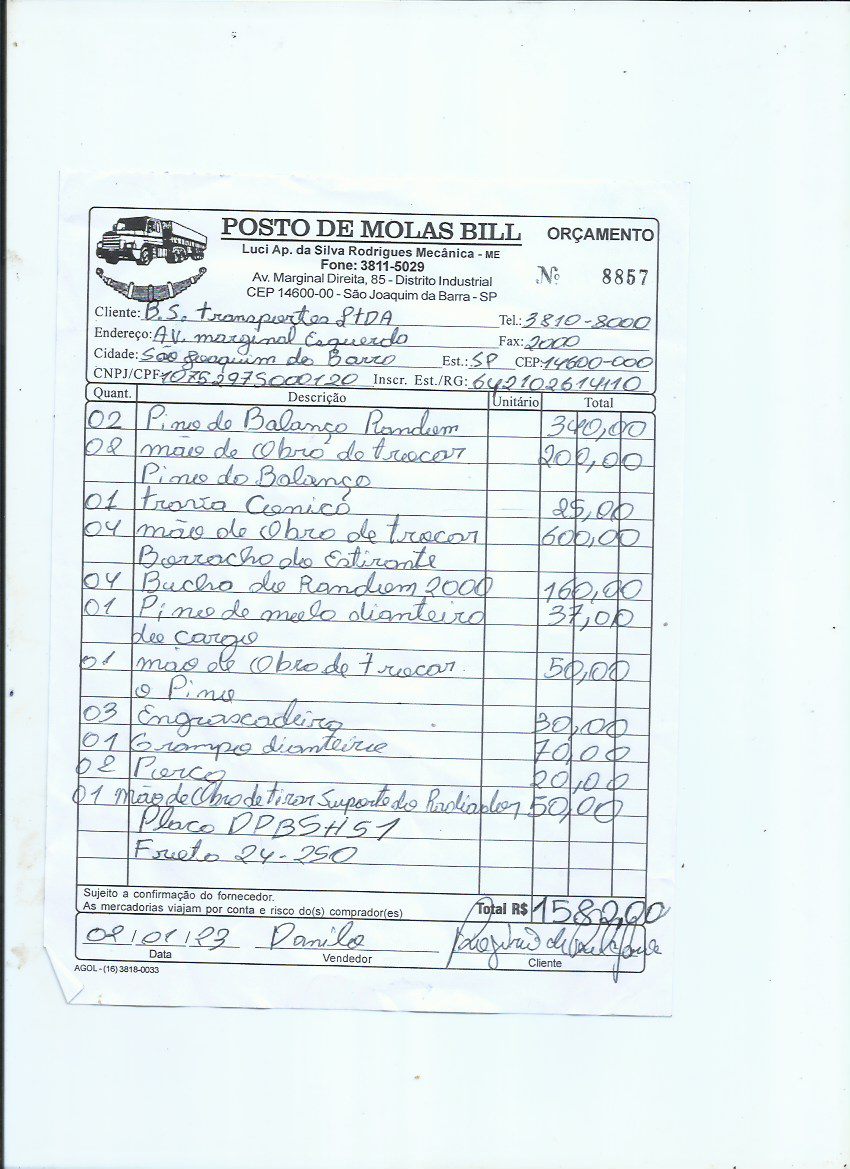 POSTO DE MOLAS BILL
ORÇAMENTO
Luci Ap. da Silva Rodrigues Mecânica - ME
Fone: 3811-5029
Av. Marginal Direita, 85 - Distrito Industrial
CEP 14600-00 - São Joaquim da Barra - SP
Nº 8857
Cliente: B.S. transportes LtDA Tel.: 3810-8000
Endereço: AV. marginal Esquerdo Fax: 2000
Cidade: São Joaquim do Barro Est.: SP CEP: 14600-000
CNPJ/CPF 10752975000120 Inscr. Est./RG: 642102614110
Quant. Descrição Unitário Total
02 Pino de Balanço Randem 340,00
02 mão de Obro de trocar 200,00
Pino do Balanço
01 trava Conico 25,00
04 mão de Obro de trocar 600,00
Borracho do Estirante
04 Bucho do Randem 2000 160,00
01 Pino de molo dianteiro 37,00
do cargo
01 mão de Obro de trocar 50,00
o Pino
03 Engraxadeiro 30,00
01 Grampo dianteiro 70,00
02 Porco 20,00
01 Mão de Obro de tirar Suporte do Radiador 50,00
Placo DPB5H51
Froto 24-250
Sujeito a confirmação do fornecedor.
As mercadorias viajam por conta e risco do(s) comprador(es)
Total R$ 1582,00
02/01/23 Danilo
Data Vendedor Cliente
AGOL - (16) 3818-0033